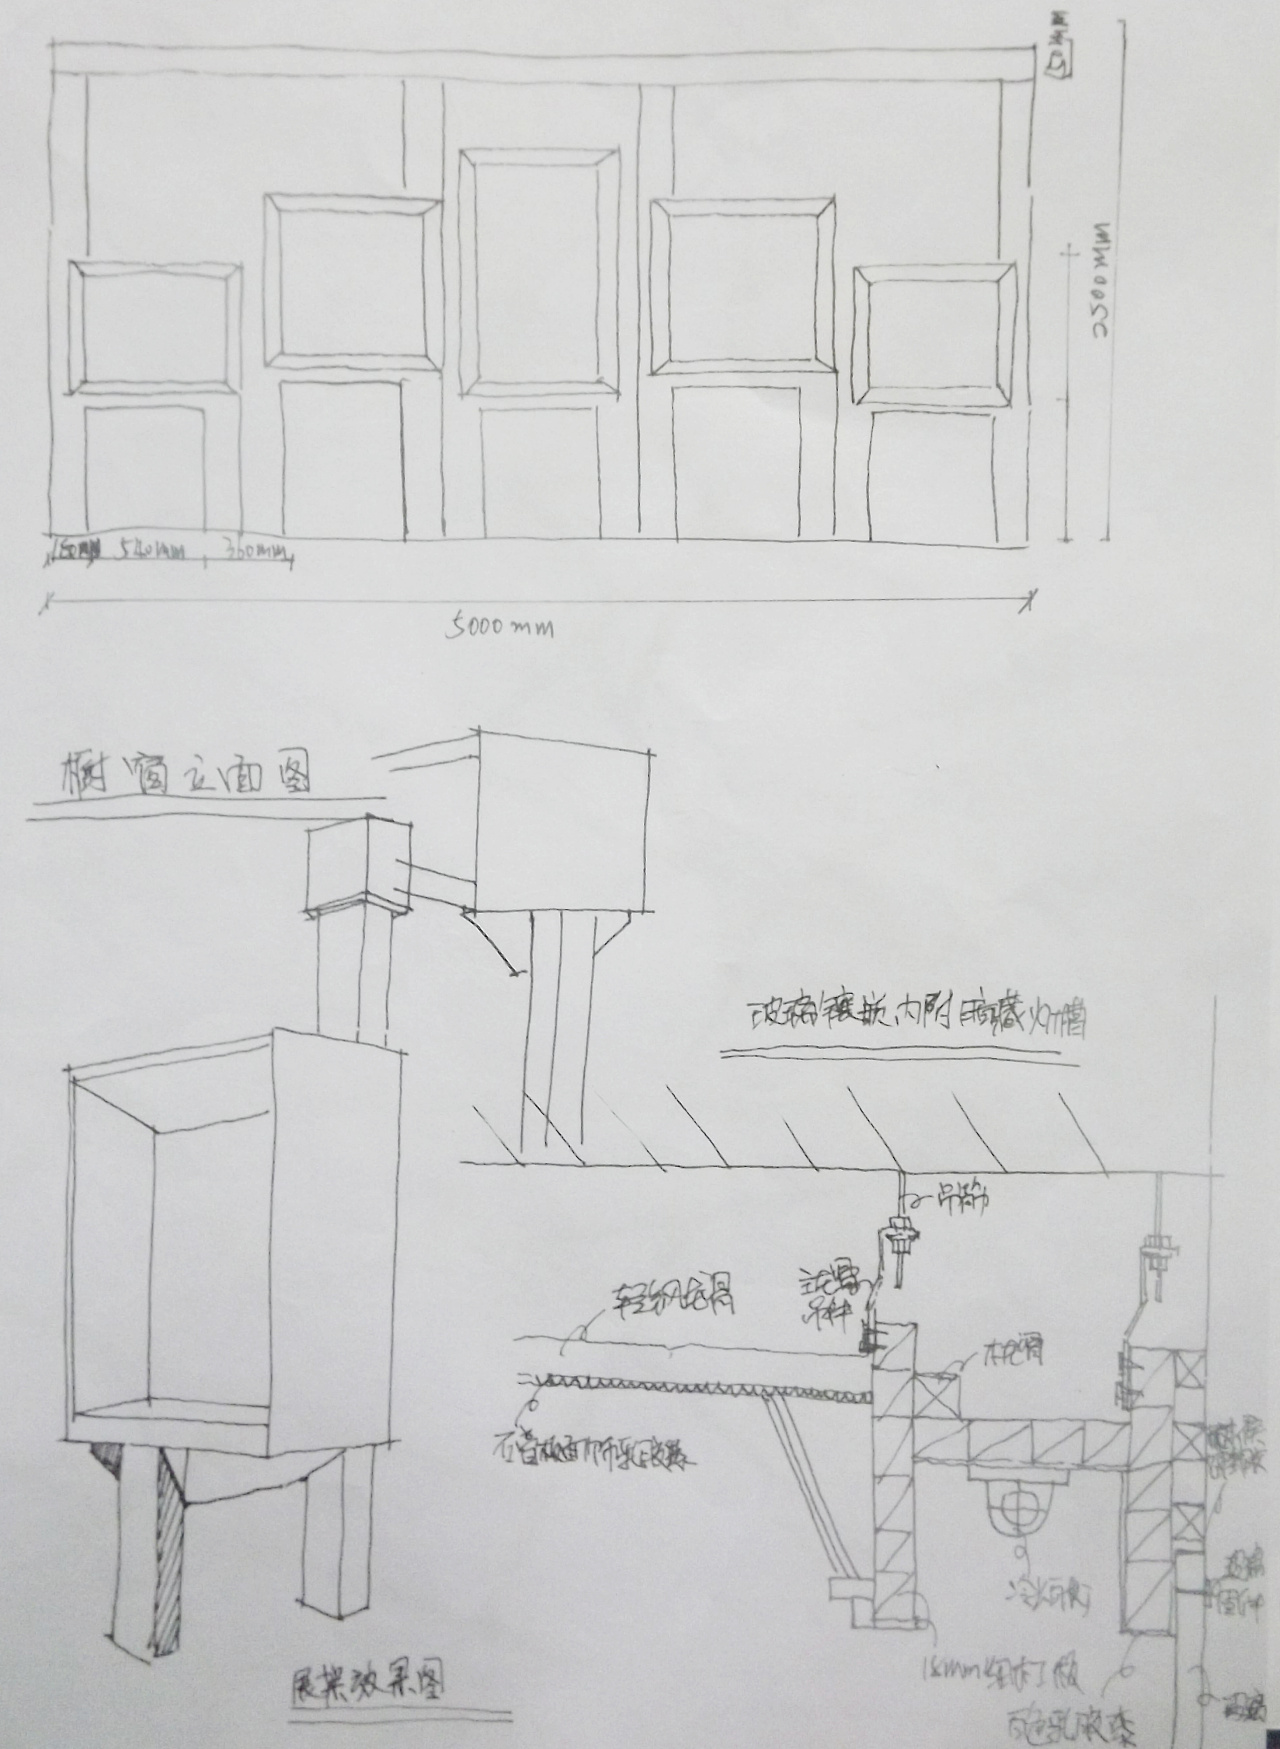 2500mm
540mm
360mm
5000mm
橱窗立面图
玻璃镶嵌内附暗藏灯槽
吊筋
轻钢龙骨
主龙骨
吊件
木龙骨
石膏板面饰乳胶漆
18mm细木工板
白色乳胶漆
玻璃
固件
玻璃
展架效果图